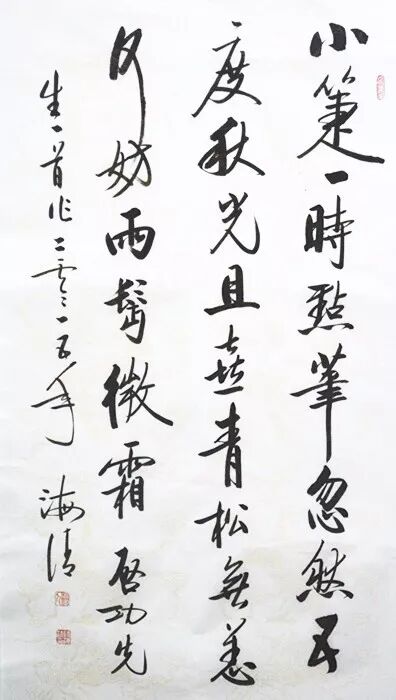 小箑一時點筆忽然五
度秋光且喜青松無恙
何妨兩鬢微霜 啟功先
生一首 作二零一五年 海清